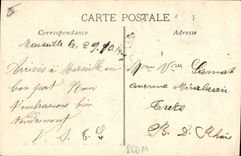 CARTE POSTALE
Correspondance
Adresse
Marseille le 29
Arrivés à Marseille en
bon port Nous
t'embrassons bien
tendrement
Mme Vve
avenue Mirabeau
Trets
B. D. Rhône